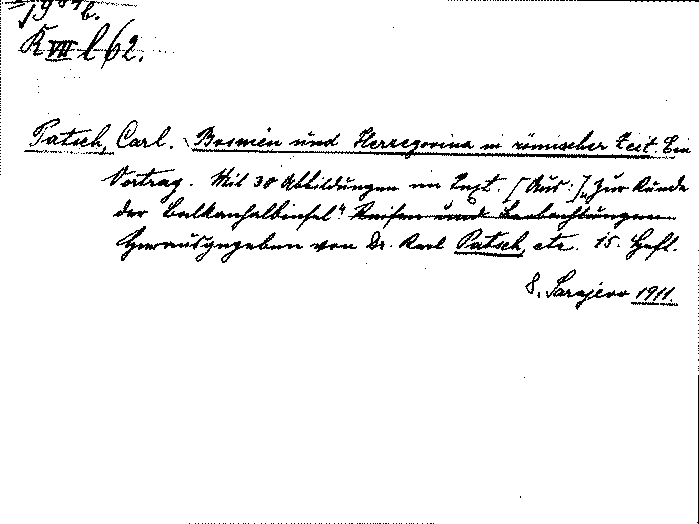 K VII l 62.
Patsch, Carl. Bosnien und Herzegovina in römischer Zeit. Ein
Vortrag. Mit 30 Abbildungen im Text. [Aus:] „Zur Kunde
der Balkanhalbinsel“ Reisen und Beobachtungen
Herausgegeben von Dr. Karl Patsch, etc. 15. Heft.
8. Sarajevo 1911.